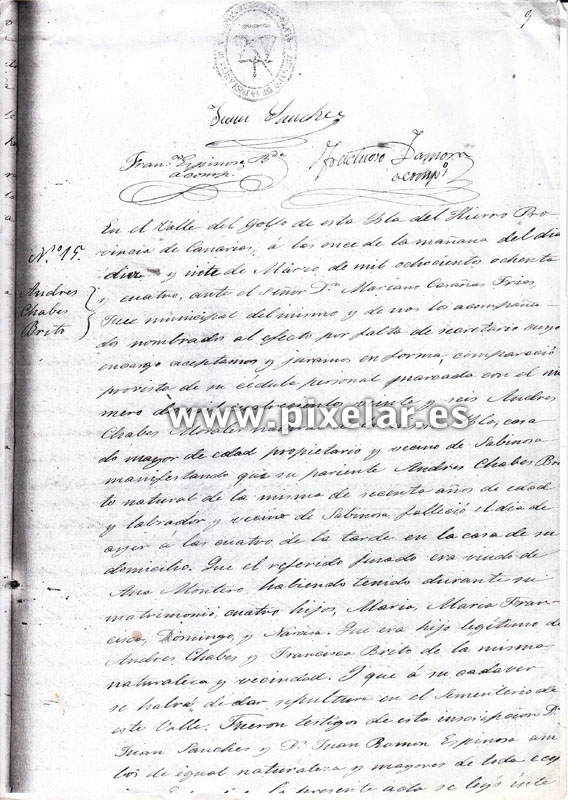 9
Juan Sanchez
Fran.co Espinosa
acomp.
Fructuoso Zamora
acomp.o
N.º 15.
Andres
Chabes
Brito
En el Valle del Golfo de esta Isla del Hierro Pro
vincia de Canarias, á las once de la mañana del dia
diez y siete de Marzo, de mil ochocientos ochenta
y cuatro, ante el Señor D.n Marcano Casañas Frias
Juez municipal del mismo y de nos los acompaña
dos nombrados al efecto por falta de secretario cuyo
encargo aceptamos y juramos en forma, compareció
provisto de su cedula personal marcada con el nu
mero veinte y seis Andres
Chabes
www.pixelar.es
do mayor de edad propietario y vecino de Sabinosa
manifestando que su pariente Andres Chabes Bri
to natural de la misma de sesenta años de edad
y labrador, y vecino de Sabinosa, falleció el dia de
ayer á las cuatro de la tarde en la casa de su
domicilio. Que el referido finado era viudo de
Ana Montero habiendo tenido durante su
matrimonio, cuatro hijos, Maria, Maria Fran-
cisca, Domingo, y Narcisa. Que era hijo legítimo de
Andres Chabes y Francisca Brito de la misma
naturaleza y vecindad. Y que á su cadaver
se habrá de dar sepultura en el Sementerio de
este Valle. Fueron testigos de esta inscripcion D.n
Juan Sanches y D.n Juan Ramon Espinosa am
bos de igual naturaleza y mayores de toda
la presente acta se leyó inte